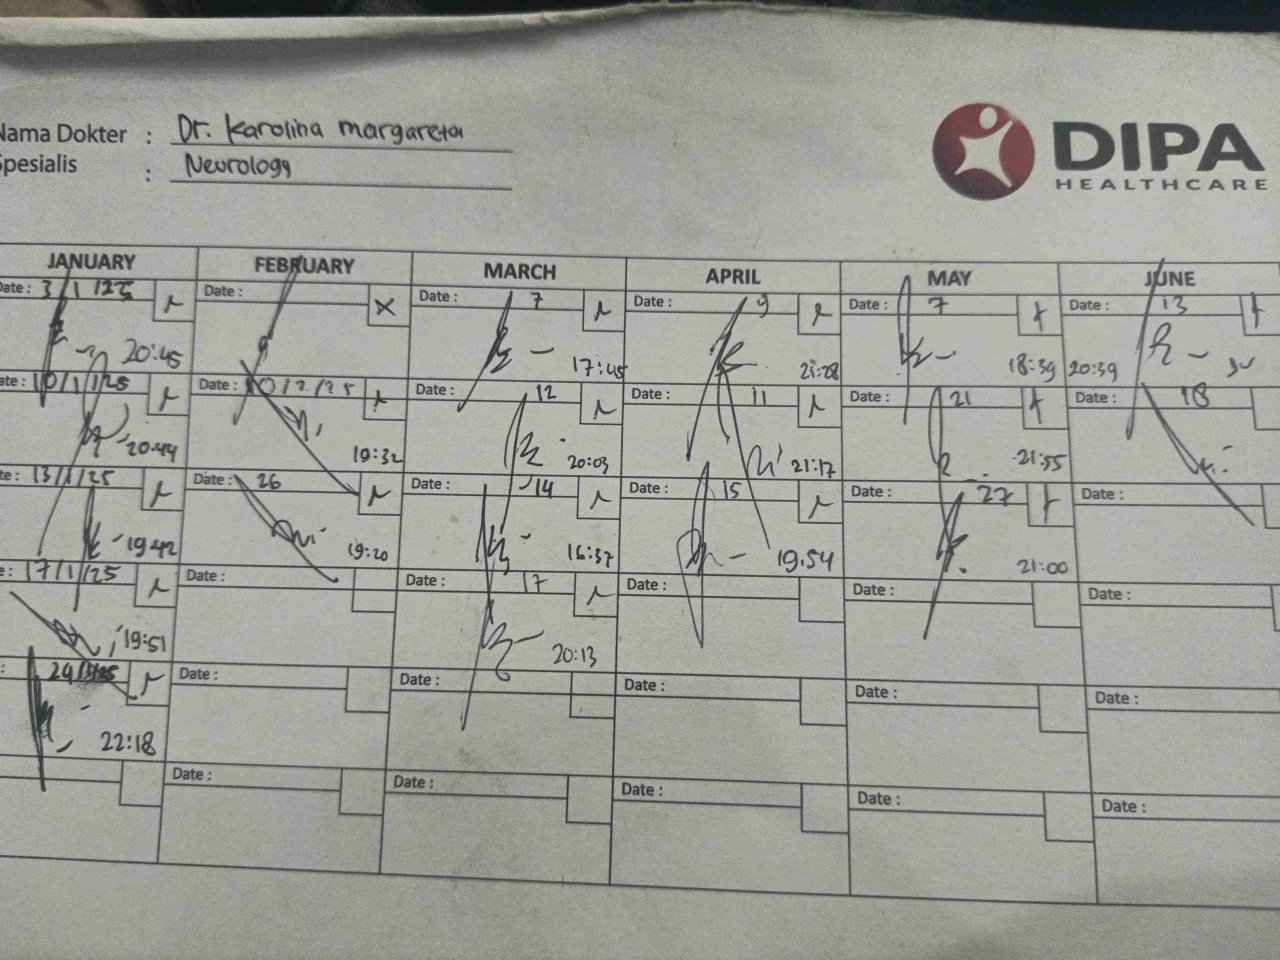 Nama Dokter : Dr. Karolina margareta
Spesialis : Neurology
DIPA
HEALTHCARE
JANUARY FEBRUARY MARCH APRIL MAY JUNE
Date : 3/1/25 Date : Date : 7 Date : 9 Date : 7 Date : 13
20:45 17:45 21:28 18:39 20:39
Date : 10/1/25 Date : 10/2/25 Date : 12 Date : 11 Date : 21 Date : 18
20:44 19:32 20:03 21:17 21:55
Date : 13/1/25 Date : 26 Date : 14 Date : 15 Date : 27 Date :
19:42 19:20 16:37 19.54 21:00
: 17/1/25 Date : Date : 17 Date : Date : Date :
19:51 20:13
: 24/1/25 Date : Date : Date : Date : Date :
22:18
Date : Date : Date : Date : Date :